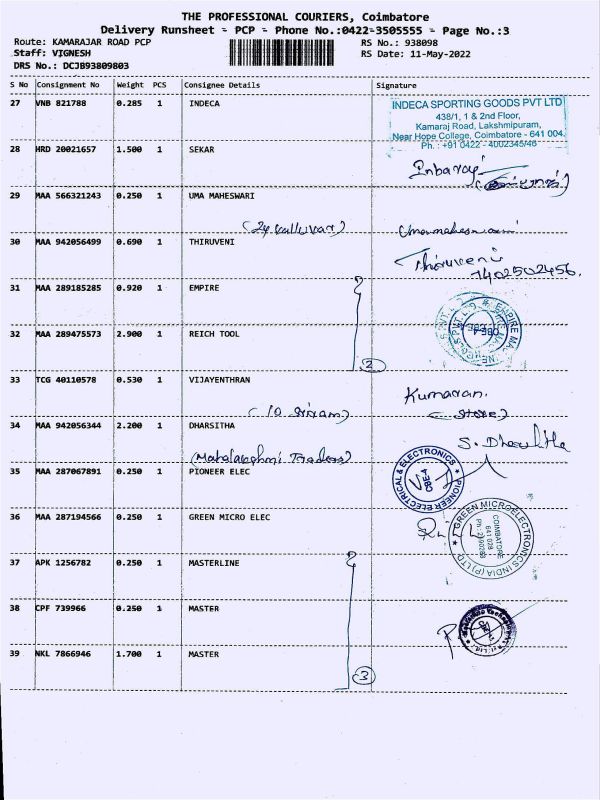 THE PROFESSIONAL COURIERS, Coimbatore
Delivery Runsheet - PCP - Phone No.:0422-3505555 - Page No.:3
Route: KAMARAJAR ROAD PCP RS No.: 938098
Staff: VIGNESH RS Date: 11-May-2022
DRS No.: DCJB93809803
S No Consignment No Weight PCS Consignee Details Signature
27 VNB 821788 0.285 1 INDECA
INDECA SPORTING GOODS PVT LTD
438/1, 1 & 2nd Floor,
Kamaraj Road, Lakshmipuram,
Near Hope College, Coimbatore - 641 004.
Ph. : +91 0422 - 4002345/46
28 HRD 20021657 1.500 1 SEKAR
Inbaraj
29 MAA 566321243 0.250 1 UMA MAHESWARI
(24 Valluvar) Umamaheswari
30 MAA 942056499 0.690 1 THIRUVENI
Thiruveni
7402502456.
31 MAA 289185285 0.920 1 EMPIRE
32 MAA 289475573 2.900 1 REICH TOOL
2
33 TCG 40110578 0.530 1 VIJAYENTHRAN
Kumaran.
(10 Sriram) (Store)
34 MAA 942056344 2.200 1 DHARSITHA
S. Dharshitha
(Mahalakshmi Traders)
35 MAA 287067891 0.250 1 PIONEER ELEC
PIONEER ELECTRICAL & ELECTRONICS
CBE-4
36 MAA 287194566 0.250 1 GREEN MICRO ELEC
GREEN MICROELECTRONICS INDIA (P) LTD.
COIMBATORE
641 028
37 APK 1256782 0.250 1 MASTERLINE
38 CPF 739966 0.250 1 MASTER
39 NKL 7866946 1.700 1 MASTER
3